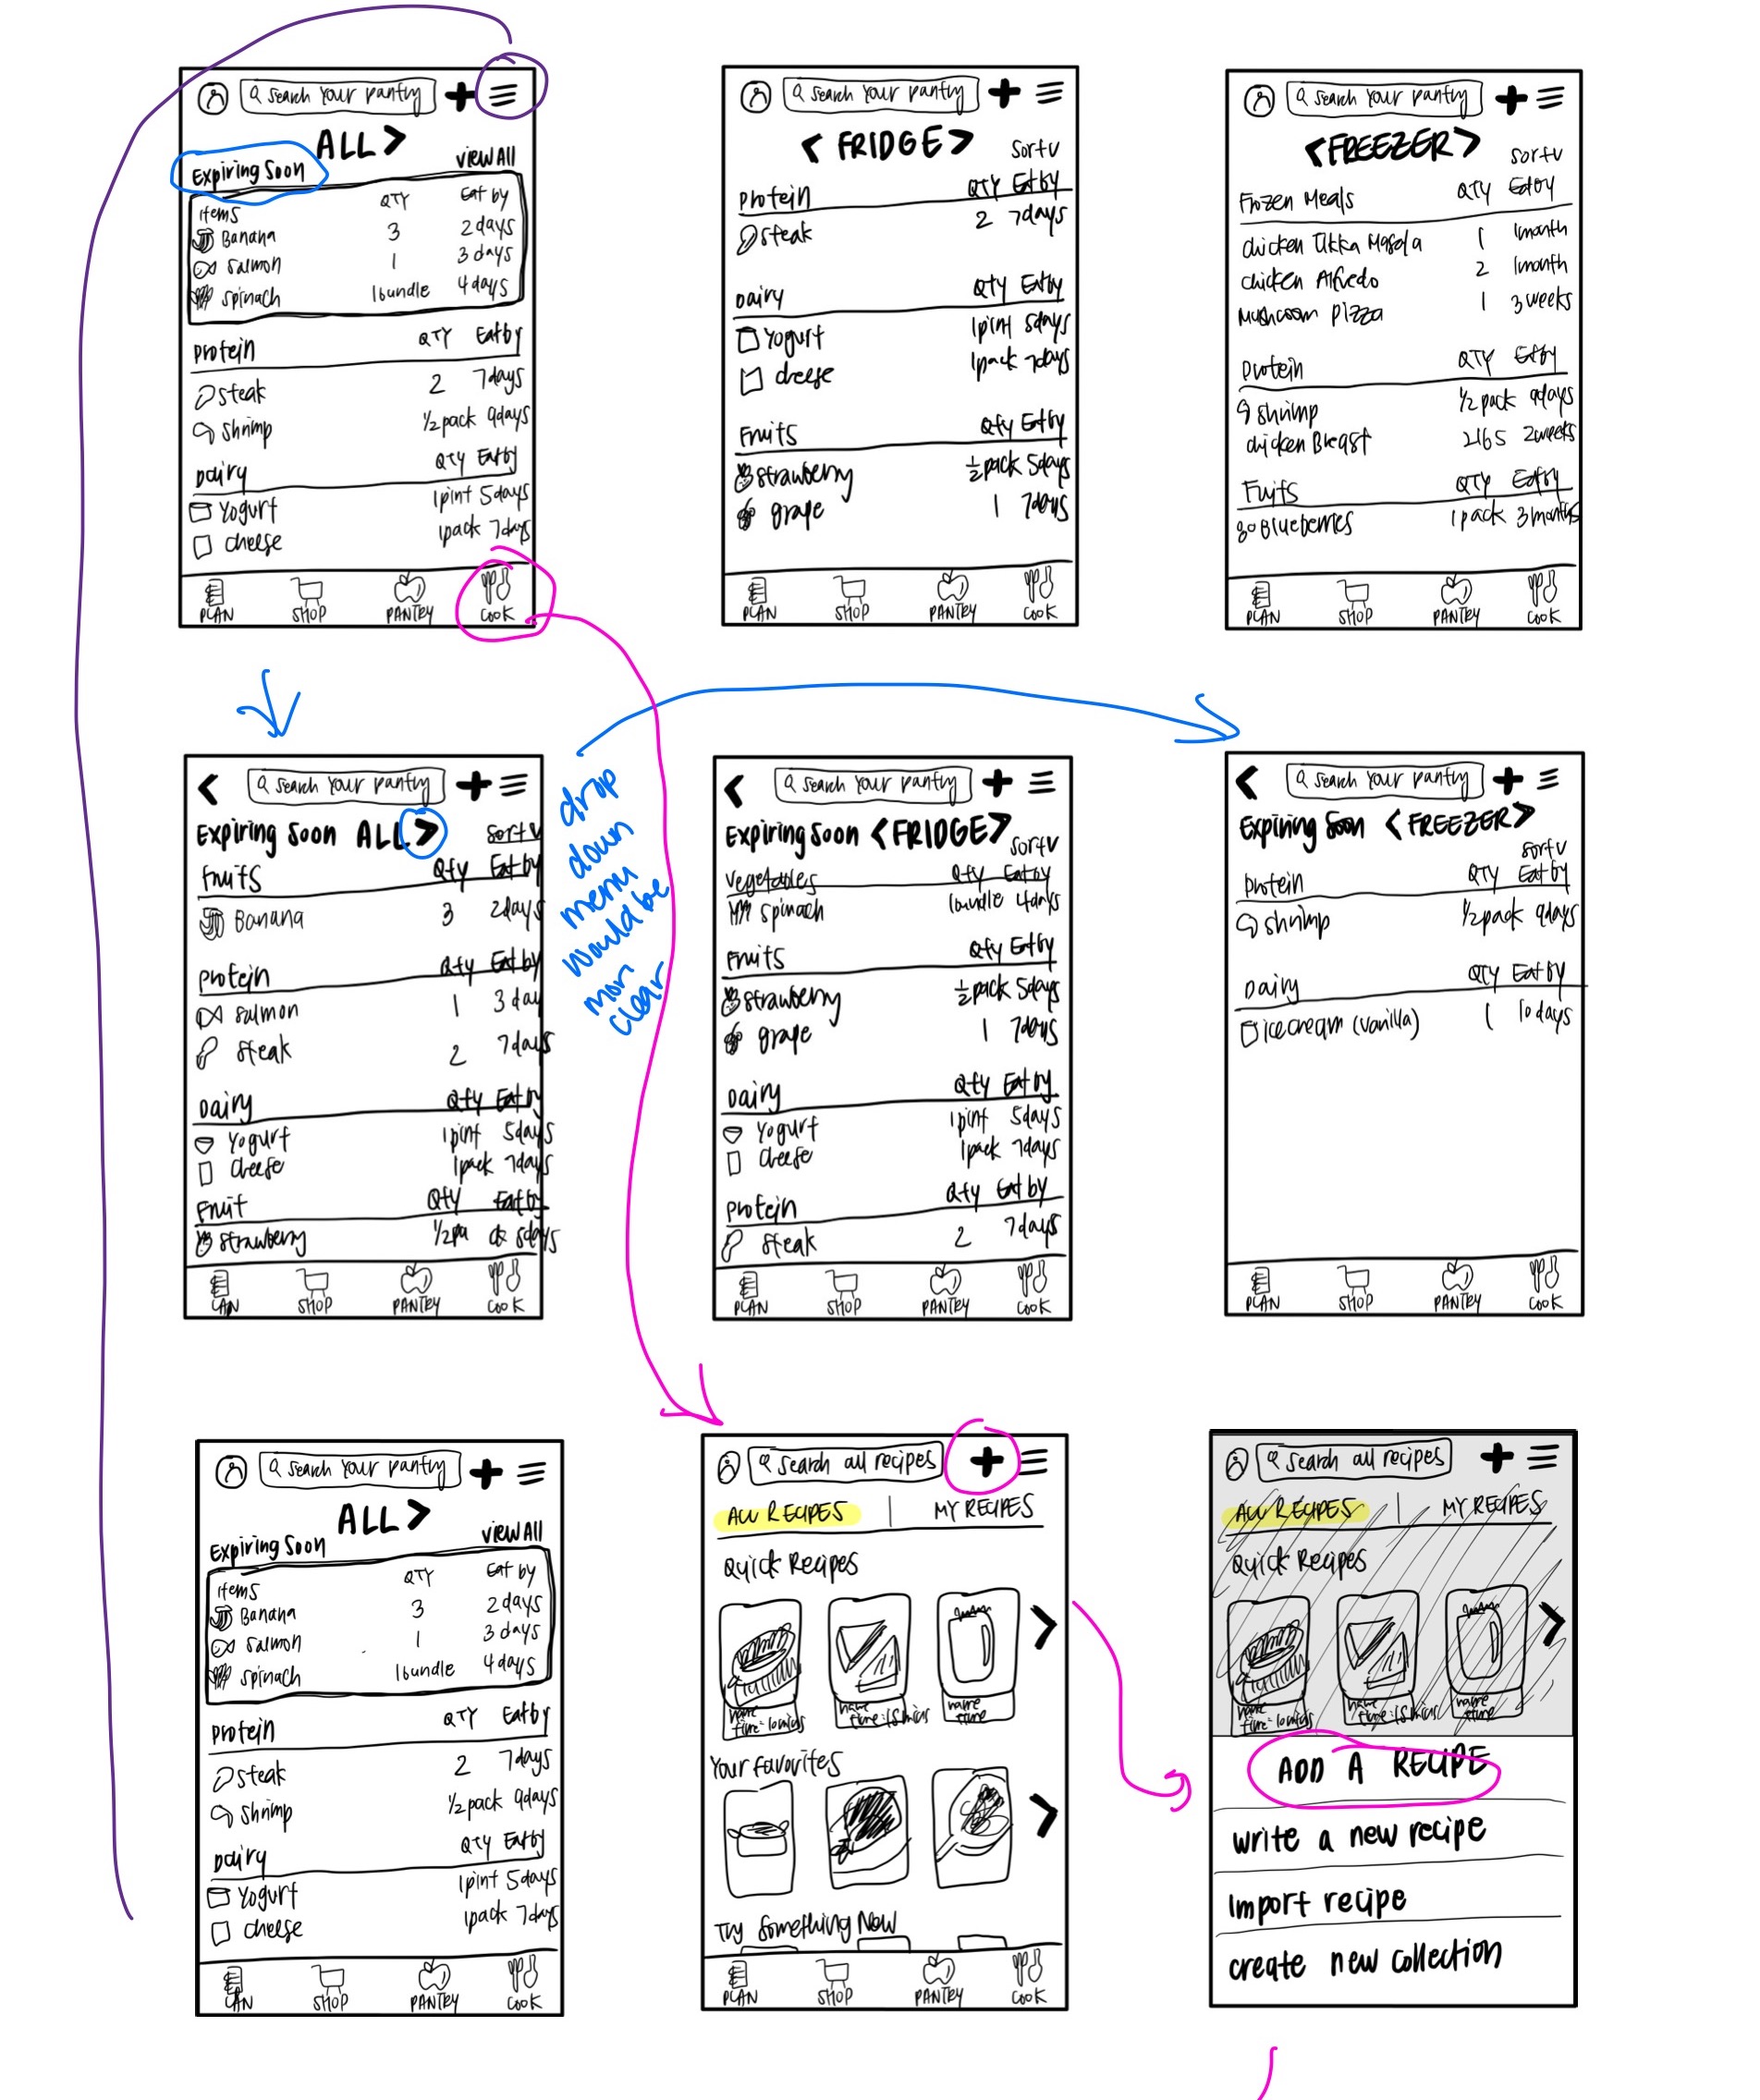 Search Your Pantry
ALL >
Expiring Soon
View All
Items QTY Eat by
Banana 3 2 days
Salmon 1 3 days
Spinach 1 bundle 4 days
Protein QTY Eat by
Steak 2 7 days
Shrimp 1/2 pack 9 days
Dairy QTY Eat by
Yogurt 1 pint 5 days
Cheese 1 pack 7 days
PLAN SHOP PANTRY COOK
Search Your Pantry
< FRIDGE >
Sort v
Protein QTY Eat by
Steak 2 7 days
Dairy QTY Eat by
Yogurt 1 pint 5 days
Cheese 1 pack 7 days
Fruits Qty Eat by
Strawberry 1/2 pack 5 days
grape 1 7 days
PLAN SHOP PANTRY COOK
Search Your Pantry
< FREEZER >
Sort v
Frozen Meals QTY Eat by
Chicken Tikka Masala 1 1 month
Chicken Alfredo 2 1 month
Mushroom Pizza 1 3 weeks
Protein QTY Eat by
Shrimp 1/2 pack 9 days
Chicken Breast 2 lbs 2 weeks
Fruits QTY Eat by
Blueberries 1 pack 3 months
PLAN SHOP PANTRY COOK
< Search Your Pantry
Expiring Soon ALL >
Sort v
Fruits Qty Eat by
Banana 3 2 days
Protein Qty Eat by
Salmon 1 3 day
Steak 2 7 days
Dairy Qty Eat by
Yogurt 1 pint 5 days
Cheese 1 pack 7 days
Fruit Qty Eat by
Strawberry 1/2 pa ck 5 days
LAN SHOP PANTRY COOK
drop
down
menu
would be
more
clear
< Search Your Pantry
Expiring Soon < FRIDGE >
Sort v
Vegetables Qty Eat by
Spinach 1 bundle 4 days
Fruits Qty Eat by
Strawberry 1/2 pack 5 days
grape 1 7 days
Dairy Qty Eat by
Yogurt 1 pint 5 days
Cheese 1 pack 7 days
Protein Qty Eat by
Steak 2 7 days
PLAN SHOP PANTRY COOK
< Search Your Pantry
Expiring Soon < FREEZER >
Sort v
Protein QTY Eat by
Shrimp 1/2 pack 9 days
Dairy QTY Eat by
ice cream (vanilla) 1 10 days
PLAN SHOP PANTRY COOK
Search Your Pantry
ALL >
Expiring Soon
View All
Items QTY Eat by
Banana 3 2 days
Salmon 1 3 days
Spinach 1 bundle 4 days
Protein QTY Eat by
Steak 2 7 days
Shrimp 1/2 pack 9 days
Dairy QTY Eat by
Yogurt 1 pint 5 days
Cheese 1 pack 7 days
LAN SHOP PANTRY COOK
Search all recipes
ALL RECIPES | MY RECIPES
Quick Recipes
name name name
time: 10 mins time: 15 mins time
Your Favorites
Try Something New
PLAN SHOP PANTRY COOK
Search all recipes
ALL RECIPES | MY RECIPES
Quick Recipes
name name name
time: 10 mins time: 15 mins time
ADD A RECIPE
write a new recipe
Import recipe
create new collection